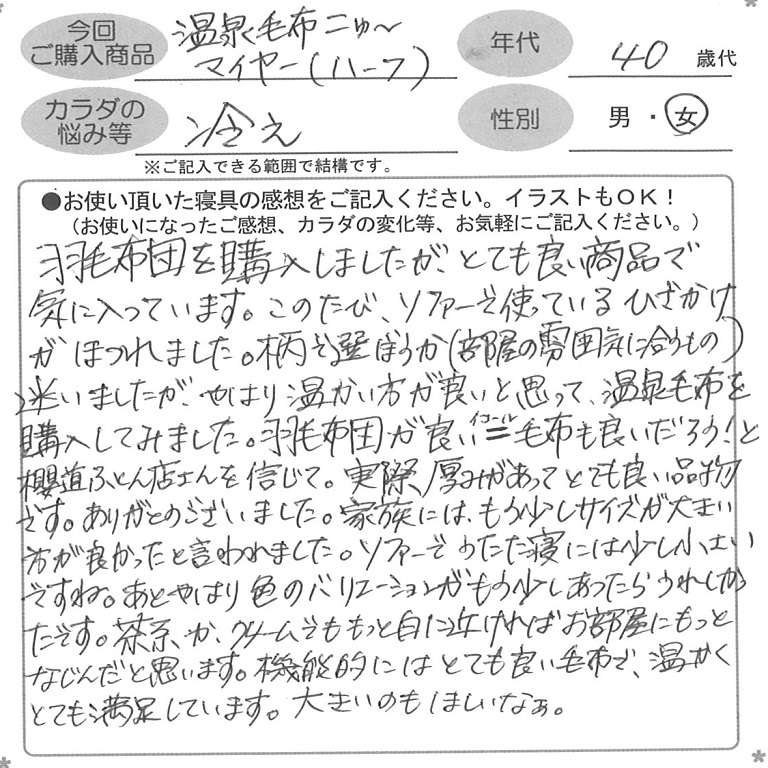 今回
ご購入商品
温泉毛布ニュ〜
マイヤー(ハーフ)
年代
40 歳代
カラダの
悩み等
冷え
性別
男・女
※ご記入できる範囲で結構です。
●お使い頂いた寝具の感想をご記入ください。イラストもOK!
(お使いになったご感想、カラダの変化等、お気軽にご記入ください。)
羽毛布団を購入しましたが、とても良い商品で
気に入っています。このたび、ソファーで使っているひざかけ
がほつれました。柄を選ぼうか(部屋の雰囲気に合うもの)
迷いましたが、やはり温かい方が良いと思って、温泉毛布を
購入してみました。羽毛布団が良い=イコール毛布も良いだろう!と
櫻道ふとん店さんを信じて。実際、厚みがあってとても良い品物
です。ありがとうございました。家族には、もう少しサイズが大きい
方が良かったと言われました。ソファーでうたた寝には少し小さい
ですね。あとやはり色のバリエーションがもう少しあったらうれしかっ
たです。茶系か、クリームでももっと白に近ければお部屋にもっと
なじんだと思います。機能的にはとても良い毛布で、温かく
とても満足しています。大きいのもほしいなぁ。